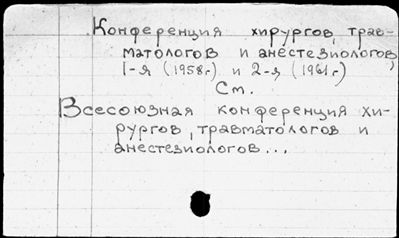 Конференция хирургов, трав-
матологов и анестезиологов,
1-я (1958г.) и 2-я (1961г.)
См.
Всесоюзная конференция хи-
рургов, травматологов и
анестезиологов...